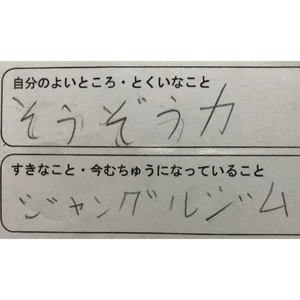 自分のよいところ・とくいなこと
そうぞう力
すきなこと・今むちゅうになっていること
ジャングルジム